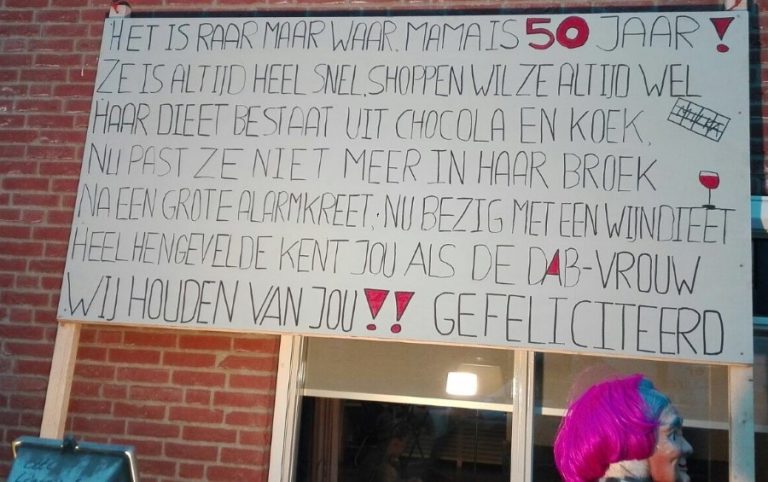 HET IS RAAR MAAR WAAR. MAMA IS 50 JAAR!
ZE IS ALTIJD HEEL SNEL. SHOPPEN WIL ZE ALTIJD WEL
HAAR DIEET BESTAAT UIT CHOCOLA EN KOEK.
NU PAST ZE NIET MEER IN HAAR BROEK
NA EEN GROTE ALARMKREET, NU BEZIG MET EEN WIJNDIEET
HEEL HENGEVELDE KENT JOU ALS DE DAB-VROUW
WIJ HOUDEN VAN JOU!! GEFELICITEERD